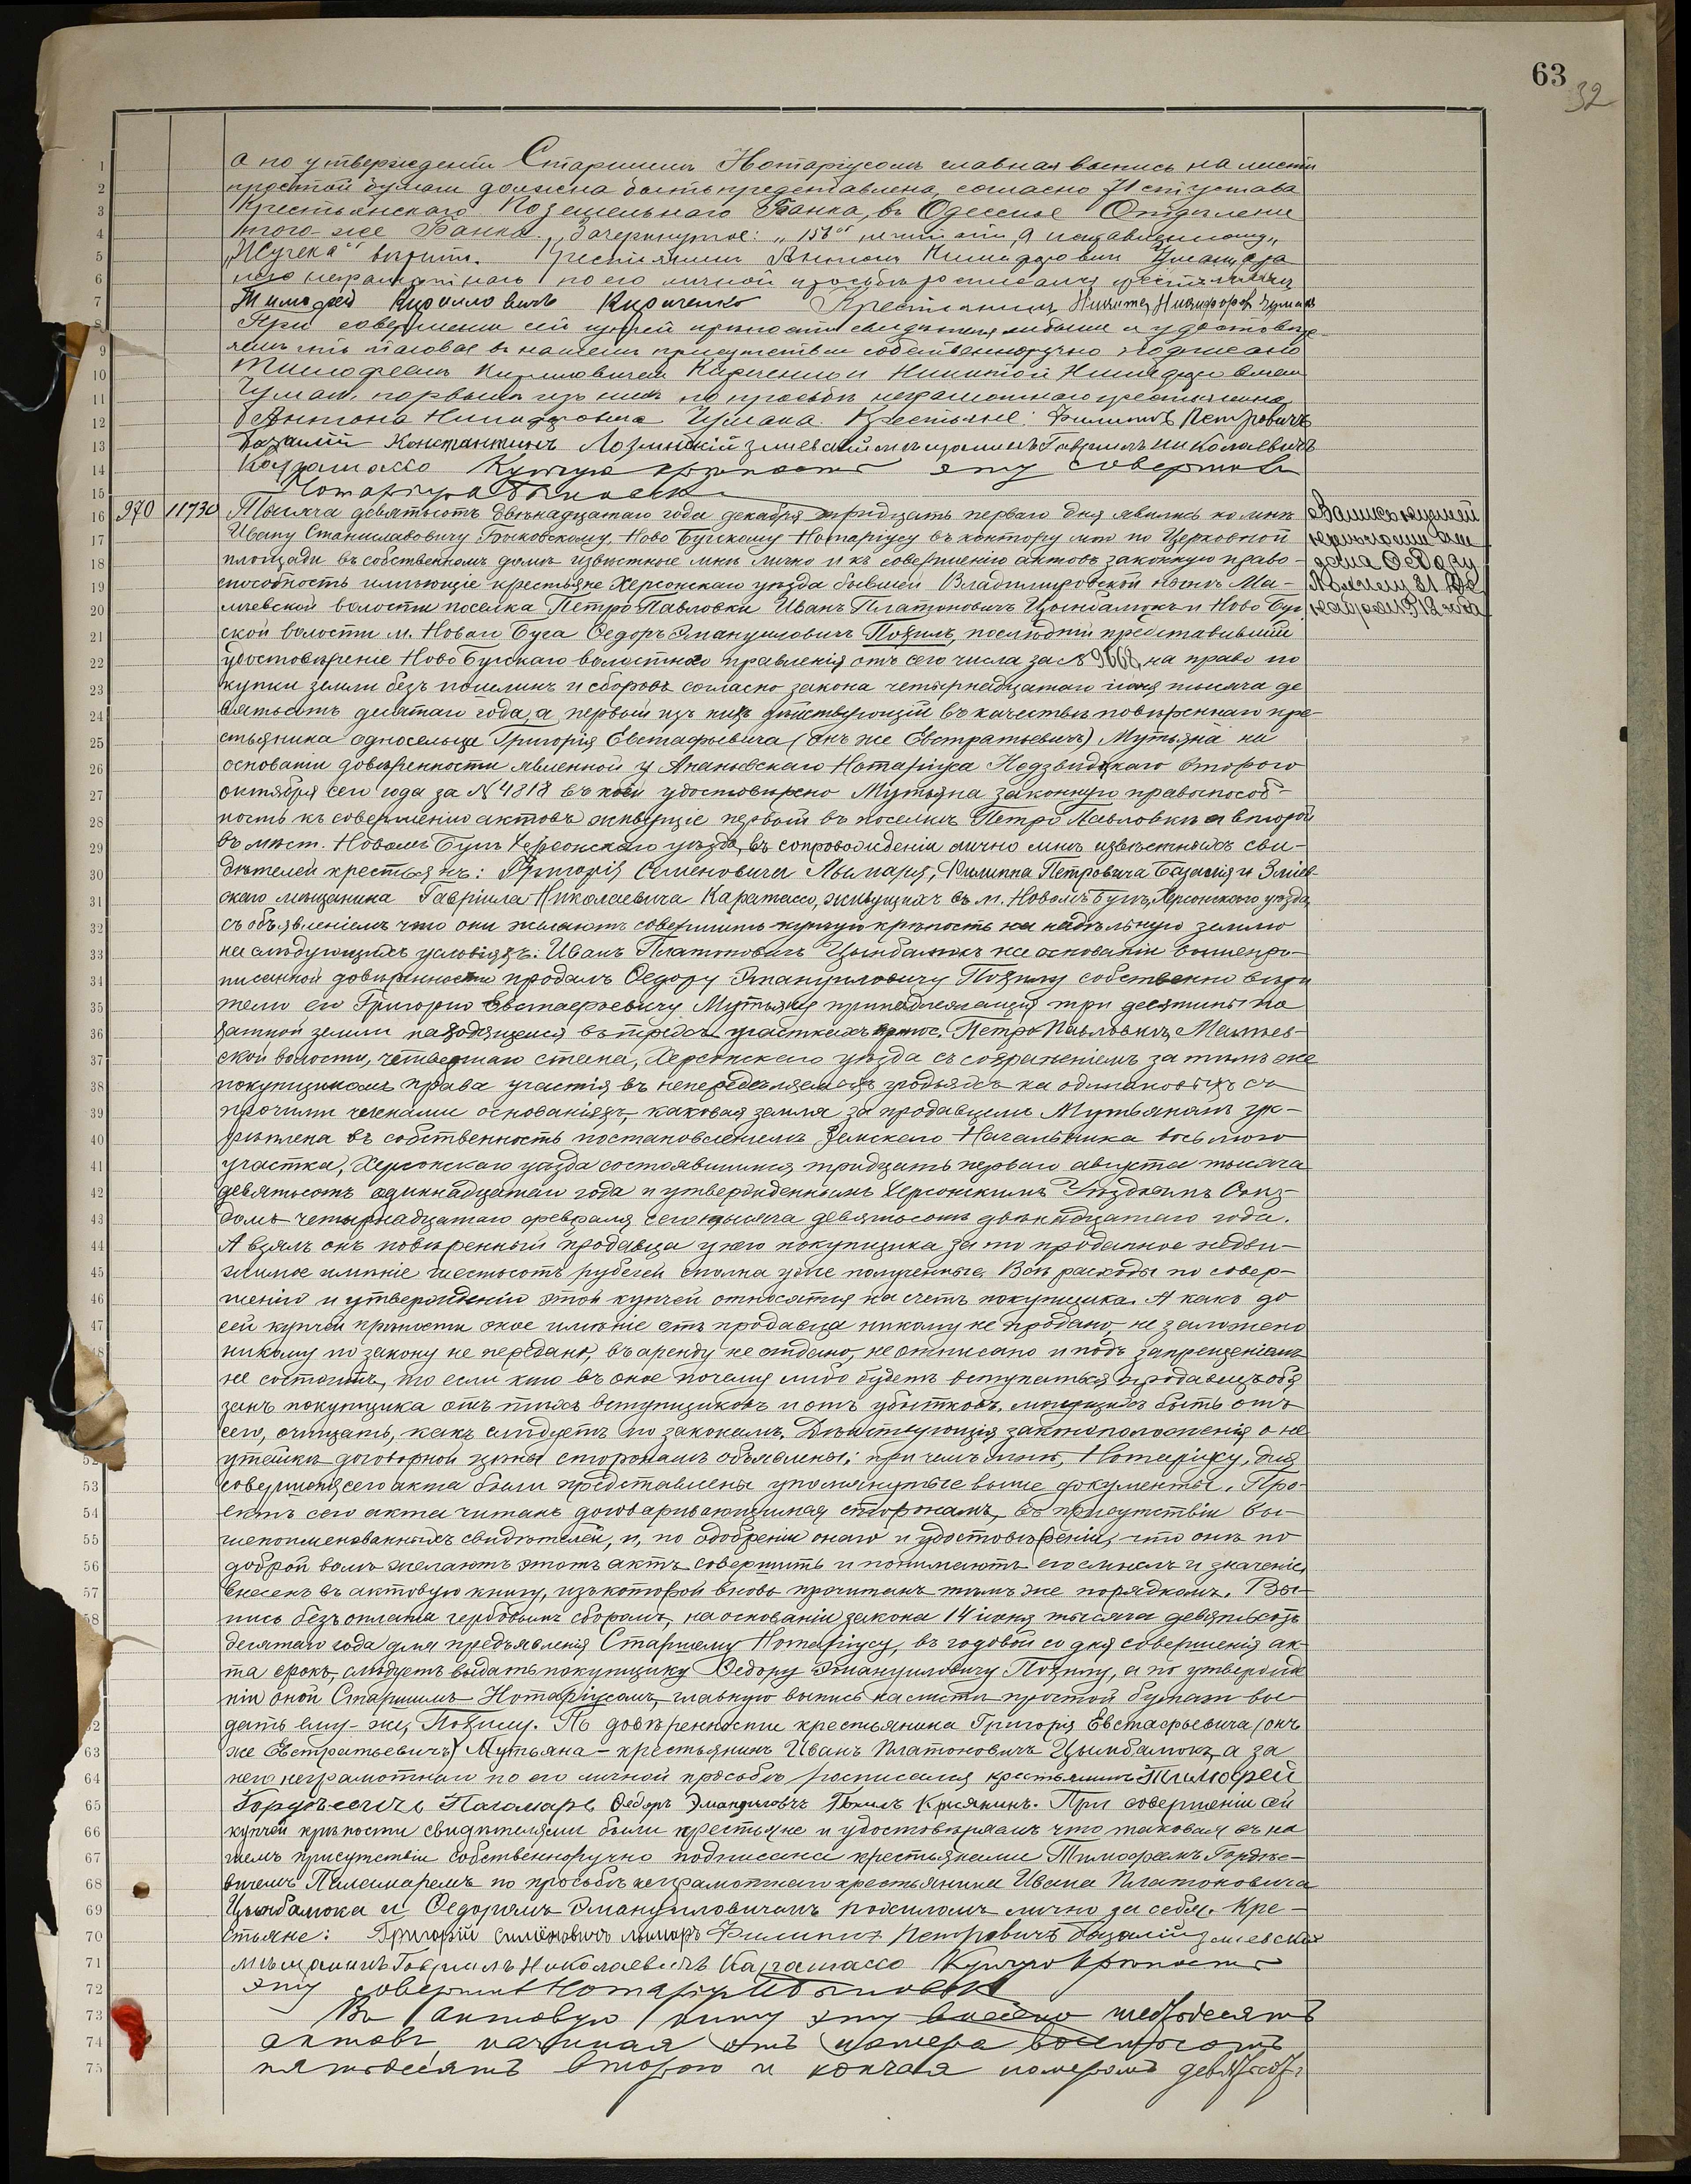 63
32
а по утверждении Старшимъ Нотаріусомъ главная выпись на листѣ
простой бумаги должна быть представлена, согласно 71 ст. устава
Крестьянскаго Поземельнаго Банка, въ Одесское Отдѣленіе
того-же Банка. Зачеркнутое: „156“
Крестьянинъ Антонъ Никифоровичъ Чумакъ, а за
него неграмотнаго по его личной просьбѣ росписался крестьянинъ
Тимофей Кирилловичъ Кириченко Крестьянинъ Никита Никифоров Чумакъ
При совершеніи сей купчей крѣпости свидѣтелями были и удостовѣ-
ряемъ что таковая въ нашемъ присутствіи собственноручно подписана
Тимофеемъ Кирилловичемъ Кириченко и Никитой Никифоровичемъ
Чумак, первымъ изъ нихъ по просьбѣ неграмотнаго крестьянина
Антона Никифоровича Чумака. Крестьяне: Филиппъ Петровичъ
Базалій Константинъ Лозинскій змiевскій мѣщанинъ Гавріилъ Николаевичъ
Каратассо Купчую крѣпость эту совершилъ
Нотаріусъ Быковскій
970 11730 Тысяча девятьсотъ двѣнадцатаго года декабря тридцать перваго дня явились ко мнѣ
Ивану Станиславовичу Быковскому, Ново Бугскому Нотаріусу въ контору мою по Церковной
площади въ собственномъ домѣ извѣстные мнѣ лично и къ совершенію актовъ законную право-
способность имѣющіе крестьяне Херсонскаго уѣзда бывшей Владимировской нынѣ Ма-
лѣевской волости поселка Петро Павловки Иванъ Платоновичъ Цымбалюкъ и Ново Буг
ской волости м. Новаго Буга Ѳедоръ Эмануиловичъ Похилъ, послѣдній представившій
удостовѣреніе Ново Бугскаго волостнаго правленія отъ сего числа за № 9668, на право по
купки земли безъ пошлинъ и сборовъ согласно закона четырнадцатаго іюня тысяча де
вятьсотъ десятаго года, а первый изъ нихъ дѣйствующій въ качествѣ повѣреннаго кре-
стьянина односельца Григорія Евстафьевича (онъ же Евстратьевичъ) Мутьяна на
основаніи довѣренности явленной у Ананьевскаго Нотаріуса Недзвидскаго второго
октября сего года за № 4818 въ коей удостовѣрено Мутьяна законную правоспособ-
ность къ совершенію актовъ живущіе первый въ поселкѣ Петро Павловкѣ а второй
въ мѣст. Новомъ Бугѣ Херсонскаго уѣзда, въ сопровожденіи лично мнѣ извѣстныхъ сви-
дѣтелей крестьянъ: Григорія Семеновича Лымаря, Филиппа Петровича Базалія и Зміев-
скаго мѣщанина Гавріила Николаевича Каратассо, живущихъ въ м. Новомъ Бугѣ, Херсонскаго уѣзда,
съ объявленіемъ что они желаютъ совершить купчую крѣпость на надѣльную землю
на слѣдующихъ условіяхъ: Иванъ Платоновичъ Цымбалюкъ на основаніи вышепро-
писанной довѣренности продалъ Ѳедору Эмануиловичу Похилу собственно вѣри
телю его Григорію Евстафьевичу Мутьяну принадлежащія три десятины па
хатной земли находящейся въ трехъ участкахъ при пос. Петро Павловкѣ, Малѣев-
ской волости, четвертаго стана, Херсонскаго уѣзда съ сохраненіемъ за тѣмъ же
покупщикомъ права участія въ непередѣляемыхъ угодьяхъ на одинаковыхъ съ
прочими членами основаніяхъ, каковая земля за продавцемъ Мутьяномъ ук-
рѣплена въ собственность постановленіемъ Земскаго Начальника восьмого
участка, Херсонскаго уѣзда состоявшимся тридцать перваго августа тысяча
девятьсотъ одиннадцатаго года и утвержденнымъ Херсонскимъ Уѣзднымъ Съѣз-
домъ четырнадцатаго февраля сего тысяча девятьсотъ двѣнадцатаго года.
А взялъ онъ повѣренный продавца у него покупщика за то проданное недви-
жимое имѣніе шестьсотъ рублей сполна уже полученные. Всѣ расходы по совер-
шенію и утвержденію этой купчей относятся на счетъ покупщика. А какъ до
сей купчей крѣпости оное имѣніе отъ продавца никому не продано, не заложено
никому по закону не передано, въ аренду не отдано, не отписано и подъ запрещеніемъ
не состоитъ, то если кто въ оное почему либо будетъ вступаться продавецъ обя
занъ покупщика отъ тѣхъ вступщиковъ и отъ убытковъ, могущихъ быть отъ
сего, очищать, какъ слѣдуетъ по законамъ. Дѣйствующія законоположенія о не
утайкѣ договорной цѣны сторонамъ объявлены; при чемъ мнѣ, Нотаріусу, для
совершенія сего акта были представлены упомянутые выше документы. Про-
ектъ сего акта читанъ договаривающимся сторонамъ, въ присутствіи вы-
шепоименованныхъ свидѣтелей, и, по одобреніи онаго и удостовѣреніи, что они по
доброй волѣ желаютъ этотъ актъ совершить и понимаютъ его смыслъ и значеніе
внесенъ въ актовую книгу, изъ которой вновь прочитанъ тѣмъ же порядкомъ. Вы-
пись безъ оплаты гербовымъ сборомъ, на основаніи закона 14 іюня тысяча девятьсотъ
десятаго года для предъявленія Старшему Нотаріусу, въ годовой со дня совершенія ак-
та срокъ, слѣдуетъ выдать покупщику Ѳедору Эмануиловичу Похилу, а по утвержде
ніи оной Старшимъ Нотаріусомъ, главную выпись на листѣ простой бумаги вы-
дать ему-же, Похилу. По довѣренности крестьянина Григорія Евстафьевича (онъ
же Евстратьевичъ) Мутьяна – крестьянинъ Иванъ Платоновичъ Цымбалюкъ, а за
него неграмотнаго по его личной просьбѣ росписался крестьянинъ Тимофей
Гордѣевичъ Паламарь Ѳедоръ Эмануиловичъ Похилъ Крестянинъ. При совершеніи сей
купчей крѣпости свидѣтелями были крестьяне и удостовѣряемъ что таковая въ на
шемъ присутствіи собственноручно подписана крестьянами Тимофеемъ Гордѣе-
вичемъ Паламаремъ по просьбѣ неграмотнаго крестьянина Ивана Платоновича
Цымбалюка и Ѳедоромъ Эмануиловичемъ Похиломъ лично за себя. Кре-
стьяне: Григорій Симёновичъ Лымаръ Филиппъ Петровичъ Базалій змiевской
мѣщанинъ Гавріилъ Николаевичъ Каратассо Купчую крѣпость
эту совершилъ Нотаріусъ Быковскій
Въ актовую книгу эту внесено шестьдесятъ
актовъ, начиная отъ номера восемьсотъ
пятьдесятъ второго и кончая номеромъ девятьсотъ
Выпись купчей
крѣпости вы
дана Ѳедору
Похилу 31 де
кабря 1912 года
1
2
3
4
5
6
7
8
9
10
11
12
13
14
15
16
17
18
19
20
21
22
23
24
25
26
27
28
29
30
31
32
33
34
35
36
37
38
39
40
41
42
43
44
45
46
47
48
52
53
54
55
56
57
58
62
63
64
65
66
67
68
69
70
71
72
73
74
75